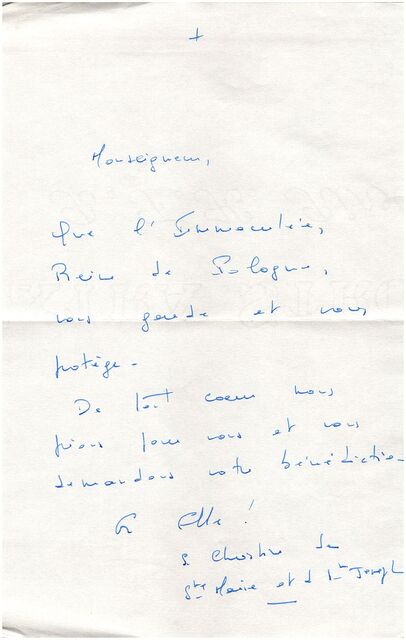 +
Monseigneur,
Que l'Immaculée,
Reine de Pologne,
vous garde et vous
protège.
De tout coeur nous
prions pour vous et vous
demandons votre bénédiction
En Elle !
S Christine de
Ste Marie et d St Joseph